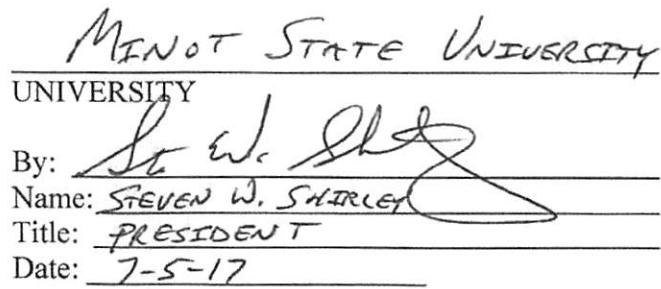 MINOT STATE UNIVERSITY
UNIVERSITY
By: St W. Shirley
Name: STEVEN W. SHIRLEY
Title: PRESIDENT
Date: 7-5-17